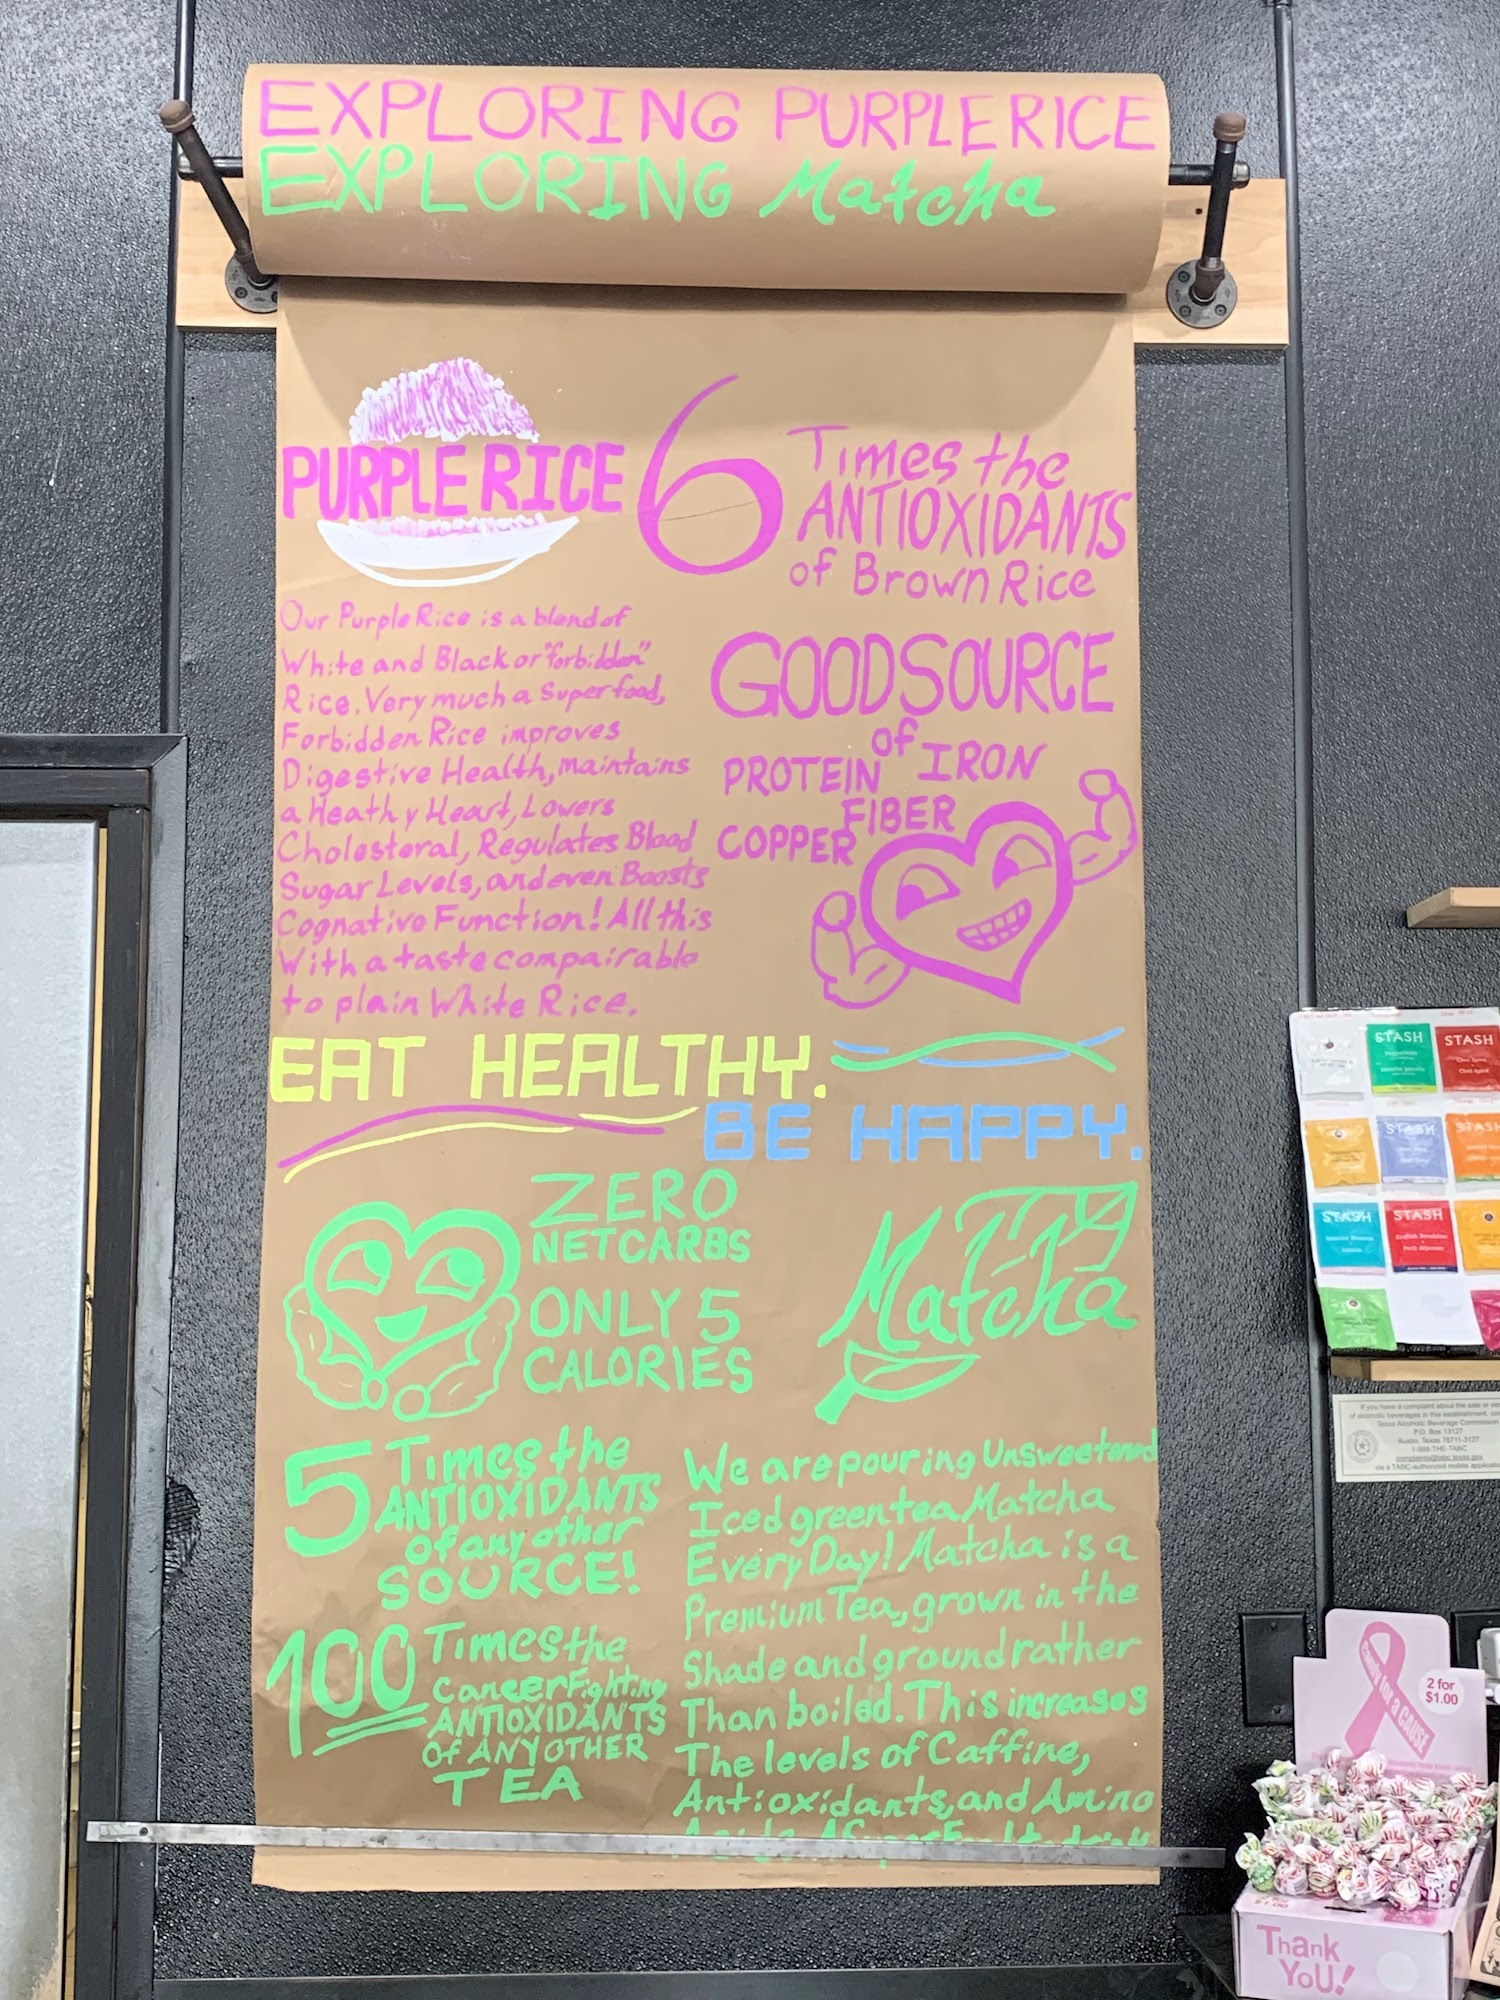 EXPLORING PURPLE RICE
EXPLORING Matcha
PURPLE RICE
6 Times the
ANTIOXIDANTS
of Brown Rice
Our Purple Rice is a blend of
White and Black or "forbidden"
Rice. Very much a Super food,
Forbidden Rice improves
Digestive Health, maintains
a Heathy Heart, Lowers
Cholesteral, Regulates Blood
Sugar Levels, and even Boosts
Cognative Function! All this
With a taste compairable
to plain White Rice.
GOOD SOURCE
of
PROTEIN IRON
FIBER
COPPER
EAT HEALTHY.
BE HAPPY.
ZERO
NET CARBS
ONLY 5
CALORIES
Matcha
5 Times the
ANTIOXIDANTS
of any other
SOURCE!
100 Times the
Cancer Fighting
ANTIOXIDANTS
Of ANY OTHER
TEA
We are pouring Unsweetened
Iced green tea Matcha
Every Day! Matcha is a
Premium Tea, grown in the
Shade and ground rather
Than boiled. This increases
The levels of Caffine,
Antioxidants, and Amino
STASH
Peppermint
STASH
Chai Spice
STASH
STASH
STASH
English Breakfast
If you have a complaint about the sale or
of alcoholic beverages in this establishment,
Texas Alcoholic Beverage Commission
P.O. Box 13127
Austin, Texas 78711-3127
1-888-THE-TABC
complaints@tabc.texas.gov
via a TABC-authorized mobile
candy for a CAUSE
2 for
$1.00
Thank
You!